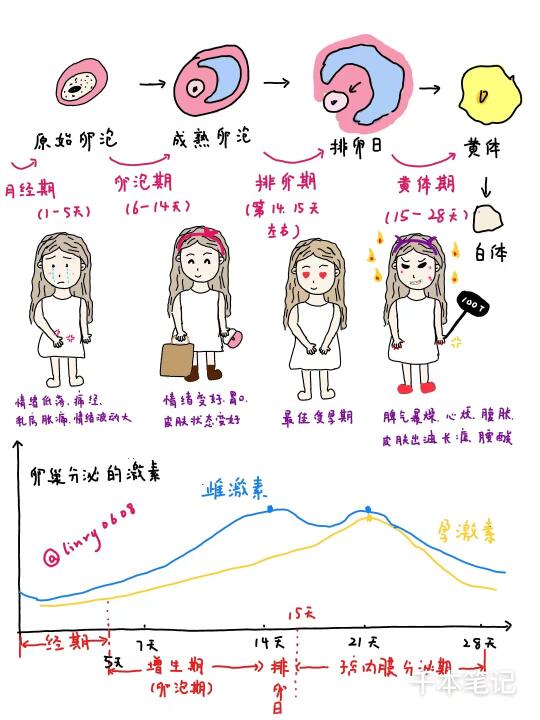 原始卵泡
成熟卵泡
排卵日
黄体
月经期
(1-5天)
卵泡期
(6-14天)
排卵期
(第14.15天
左右)
黄体期
(15-28天)
白体
100T
情绪低落.痛经.
乳房胀痛.情绪波动大
情绪变好.胃口.
皮肤状态变好
最佳受孕期
脾气暴燥.心烦.腹胀.
皮肤出油长痘.腰酸
卵巢分泌的激素
雌激素
孕激素
@linry0608
15天
7天
14天
21天
28天
经期
5天
增生期
(卵泡期)
排卵日
子宫内膜分泌期
千本笔记